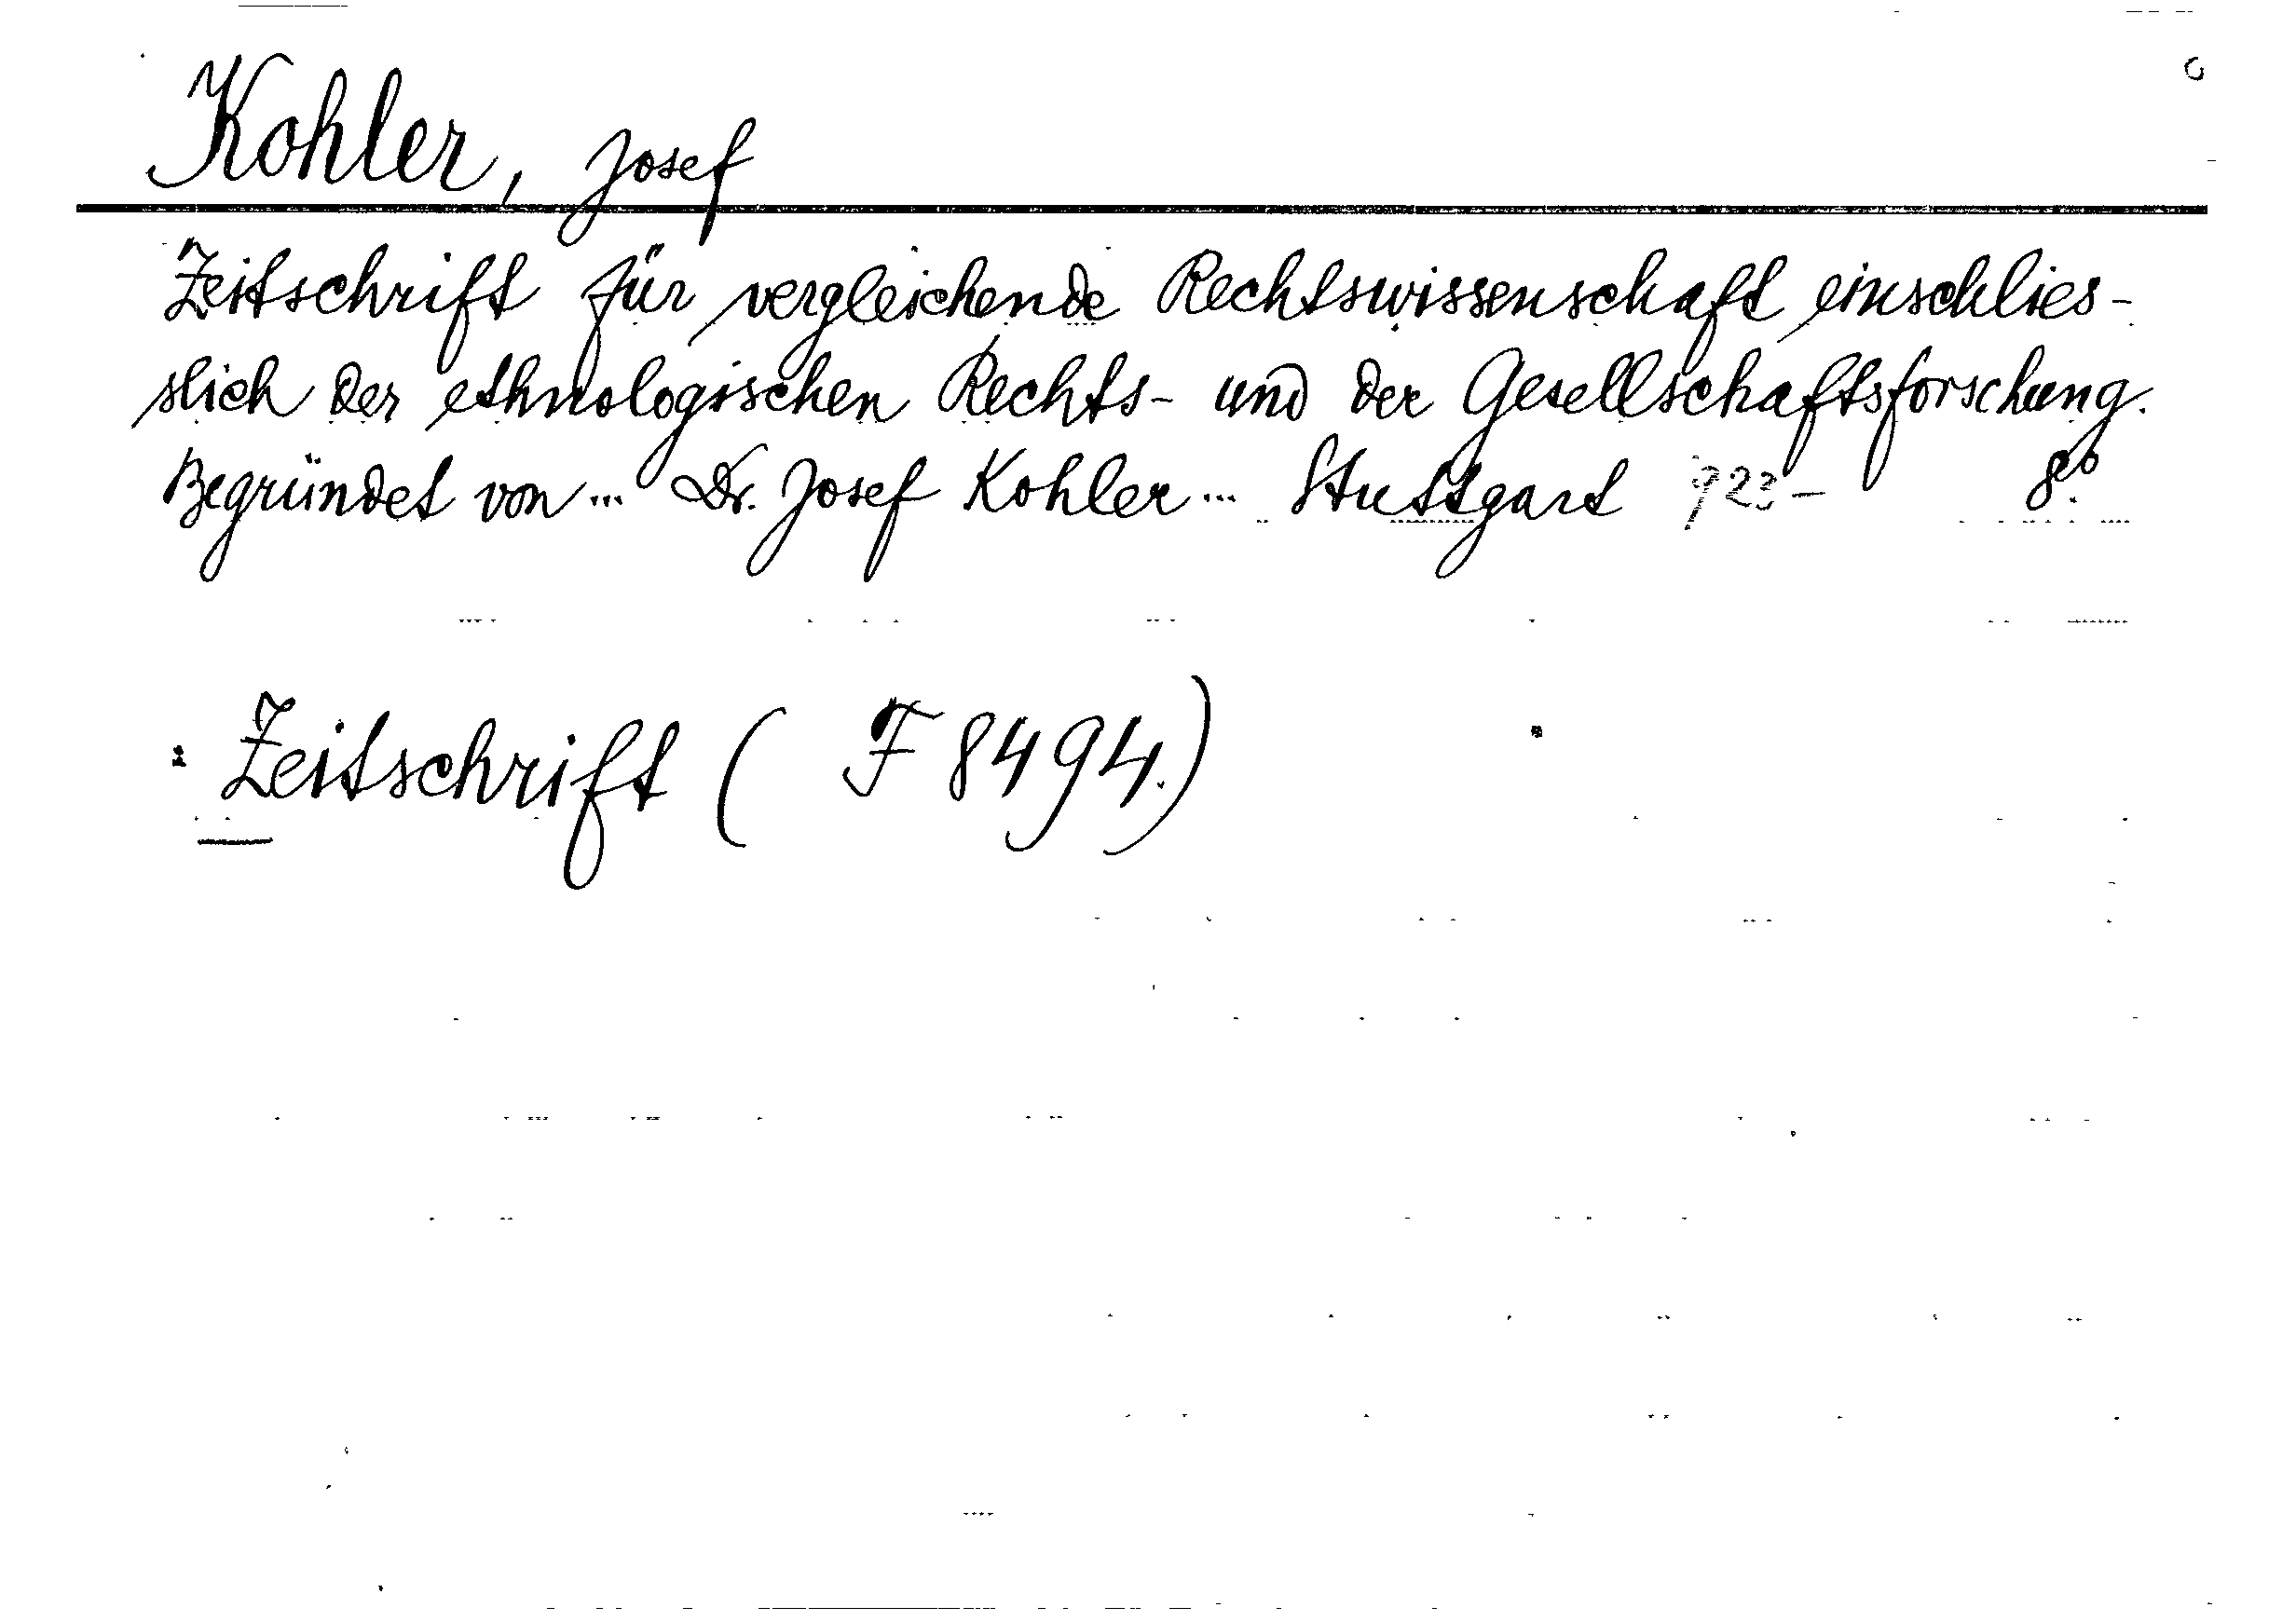 Kohler, Josef
Zeitschrift für vergleichende Rechtswissenschaft einschlies-
slich der ethnologischen Rechts- und der Gesellschaftsforschung.
Begründet von ... Dr. Josef Kohler ... Stuttgart 923- 8º.
: Zeitschrift ( F 8494.)